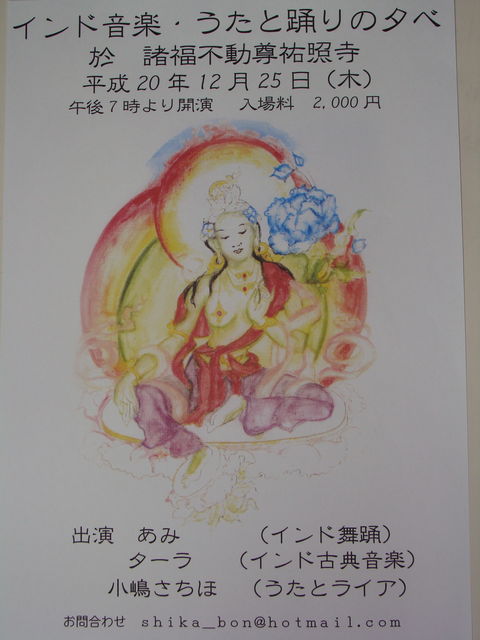 インド音楽・うたと踊りの夕べ
於 諸福不動尊祐照寺
平成20年12月25日（木）
午後7時より開演 入場料 2,000円
出演 あみ （インド舞踊）
ターラ （インド古典音楽）
小嶋さちほ （うたとライア）
お問合わせ shika_bon@hotmail.com